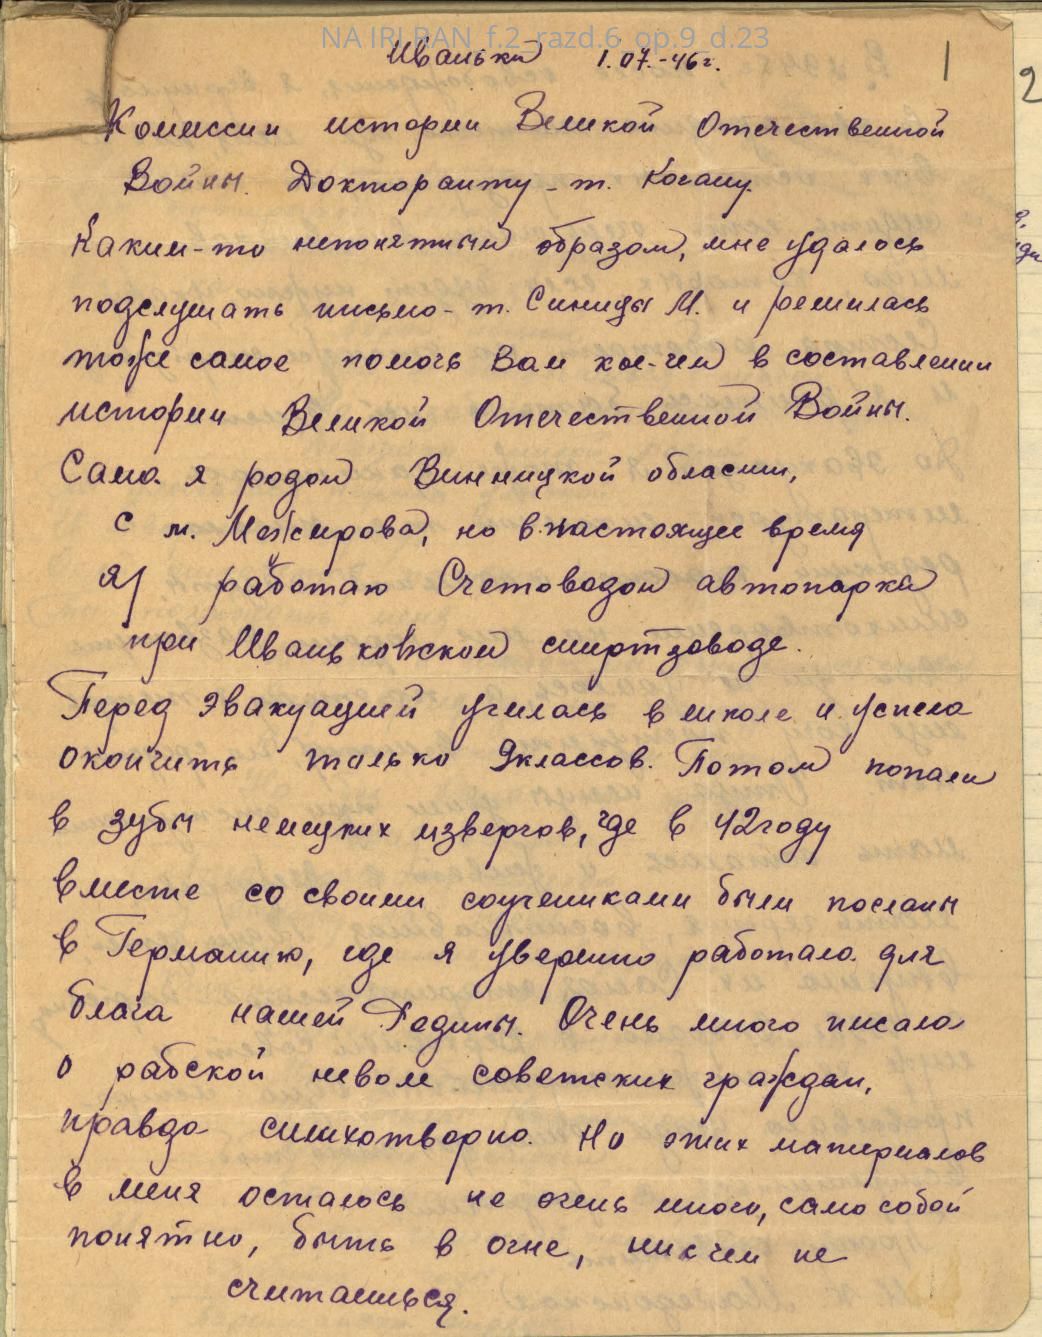 NA IRI RAN_f.2_razd.6_op.9_d.23
Иваньки 1.07.-46г. 1
2
Комиссии истории Великой Отечественной
Войны. Докторанту - т. Когану.
Каким-то непонятным образом, мне удалось
подслушать письмо - т. Синицы М. и решилась
тоже самое помочь Вам кое-чем в составлении
истории Великой Отечественной Войны.
Сама я родом Винницкой области,
с м. Межирова, но в настоящее время
я работаю Счетоводом автопарка
при Иваньковском спиртзаводе.
Перед эвакуацией училась в школе и успела
окончить только 9классов. Потом попали
в зубы немецких извергов, где в 42году
вместе со своими соучениками были посланы
в Германию, где я уверенно работала для
блага нашей Родины. Очень много писала
о рабской неволе советских граждан,
правда стихотворно. Но этих материалов
в меня осталось не очень много, само собой
понятно, быть в огне, ни с чем не
считаешься.